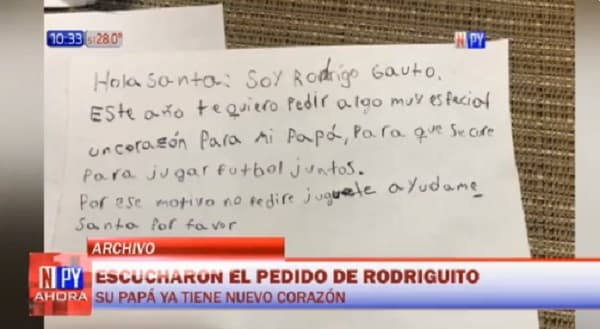 10:33 28.0°
NPY
Hola Santa: Soy Rodrigo Gauto.
Este año te quiero pedir algo muy especial
un corazón Para mi Papá, Para que se cure
Para jugar futbol juntos.
Por ese motivo no pedire juguete ayudame
Santa Por favor
ARCHIVO
NPY
AHORA
ESCUCHARON EL PEDIDO DE RODRIGUITO
SU PAPÁ YA TIENE NUEVO CORAZÓN